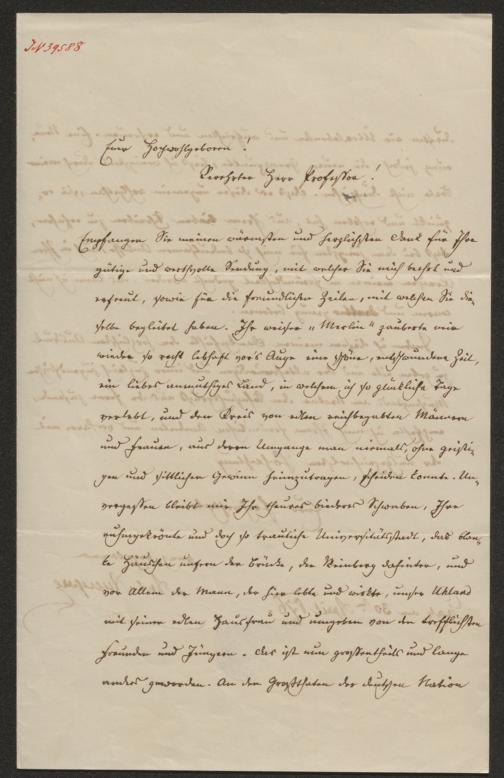 IN 39588
Euer Hochwohlgeboren!
Verehrter Herr Professor!
Empfangen Sie meinen wärmsten und herzlichsten Dank für Ihre
gütige und werthvolle Sendung, mit welcher Sie mich beehrt und
erfreut, sowie für die freundlichen Zeilen, mit welchen Sie die-
selbe begleitet haben. Ihr weiser „Merlin“ zauberte mir
wieder so recht lebhaft vor's Auge eine schöne, entschwundene Zeit,
ein liebes anmuthiges Land, in welchem ich so glückliche Tage
verlebt, und den Kreis von edlen reichbegabten Männern
und Frauen, aus deren Umgange man niemals, ohne geisti-
gen und sittlichen Gewinn heimzutragen, scheiden konnte. Un-
vergessen bleibt mir Ihr theures biederes Schwaben, Ihre
ruhmgekrönte und doch so trauliche Universitätsstadt, das
Häuschen unfern der Brücke, der Weinberg dahinter, und
vor Allem der Mann, der hier lebte und wirkte, unser Uhland
mit seiner edlen Hausfrau und umgeben von den trefflichsten
Freunden und Jüngern. Das ist nun großentheils und lange
anders geworden. An den Großthaten der deutschen Nation